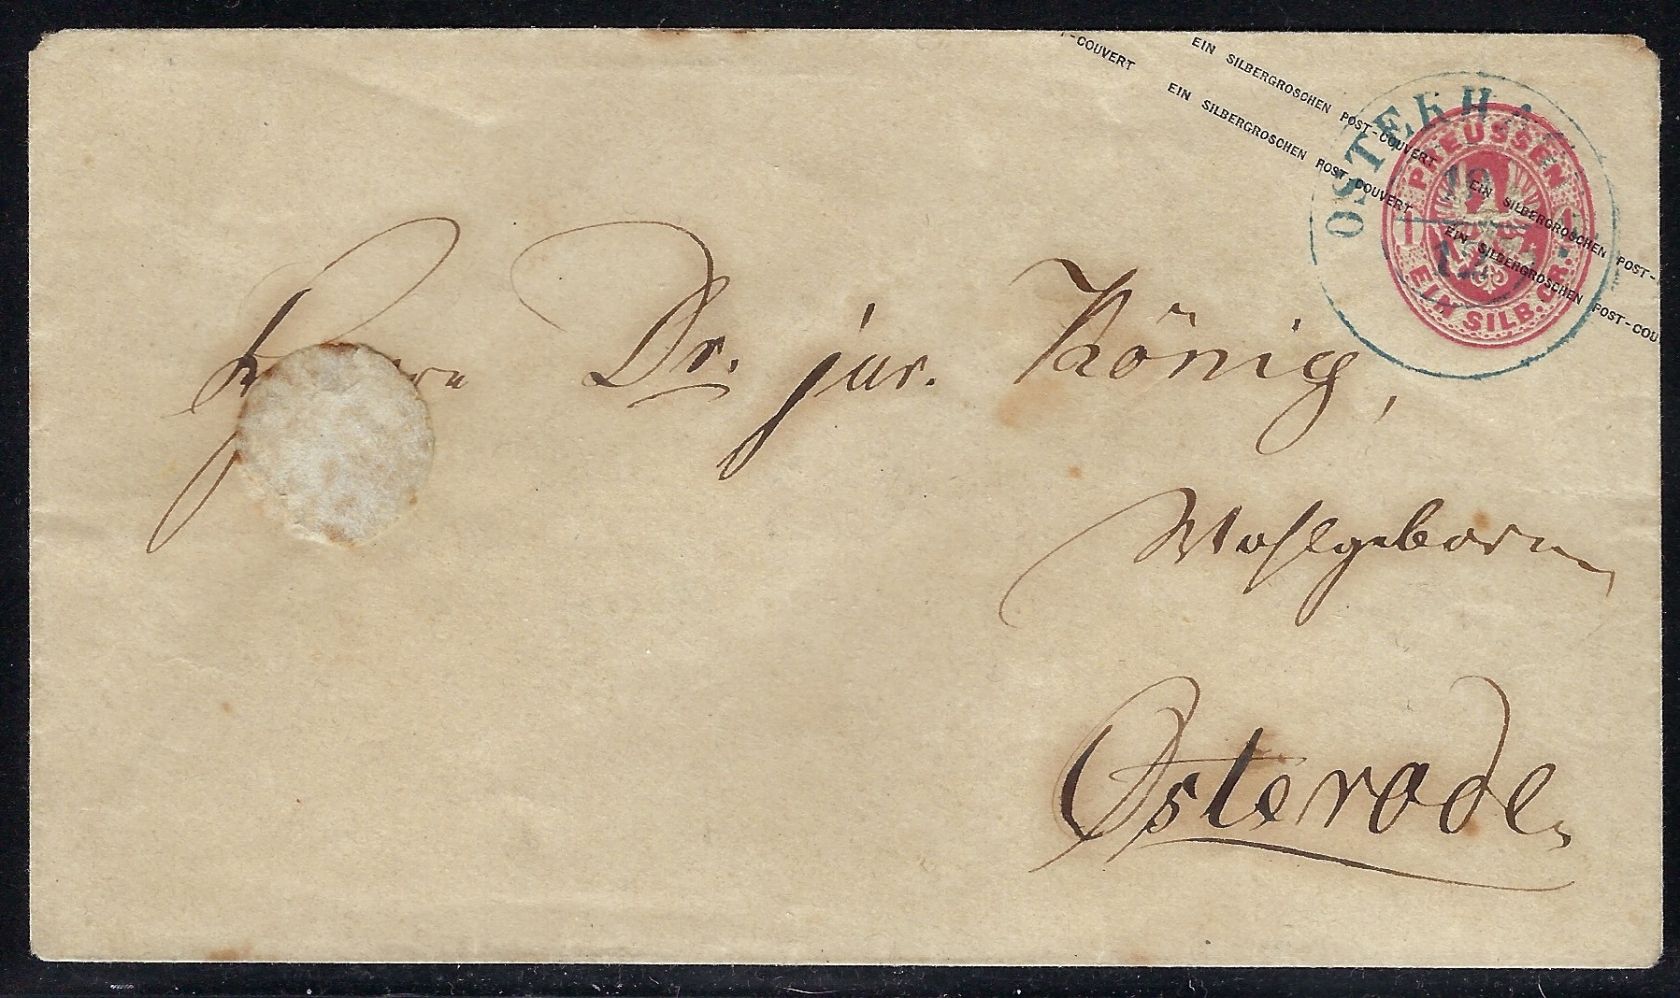 T-COUVERT
EIN SILBERGROSCHEN POST-COUVERT EIN SILBERGROSCHEN POST-
EIN SILBERGROSCHEN POST-COUVERT EIN SILBERGROSCHEN POST-COU
PREUSSEN
1 1
EIN SILB.GR.
12
Dr. jur. König,
Wohlgeborn
Osterode